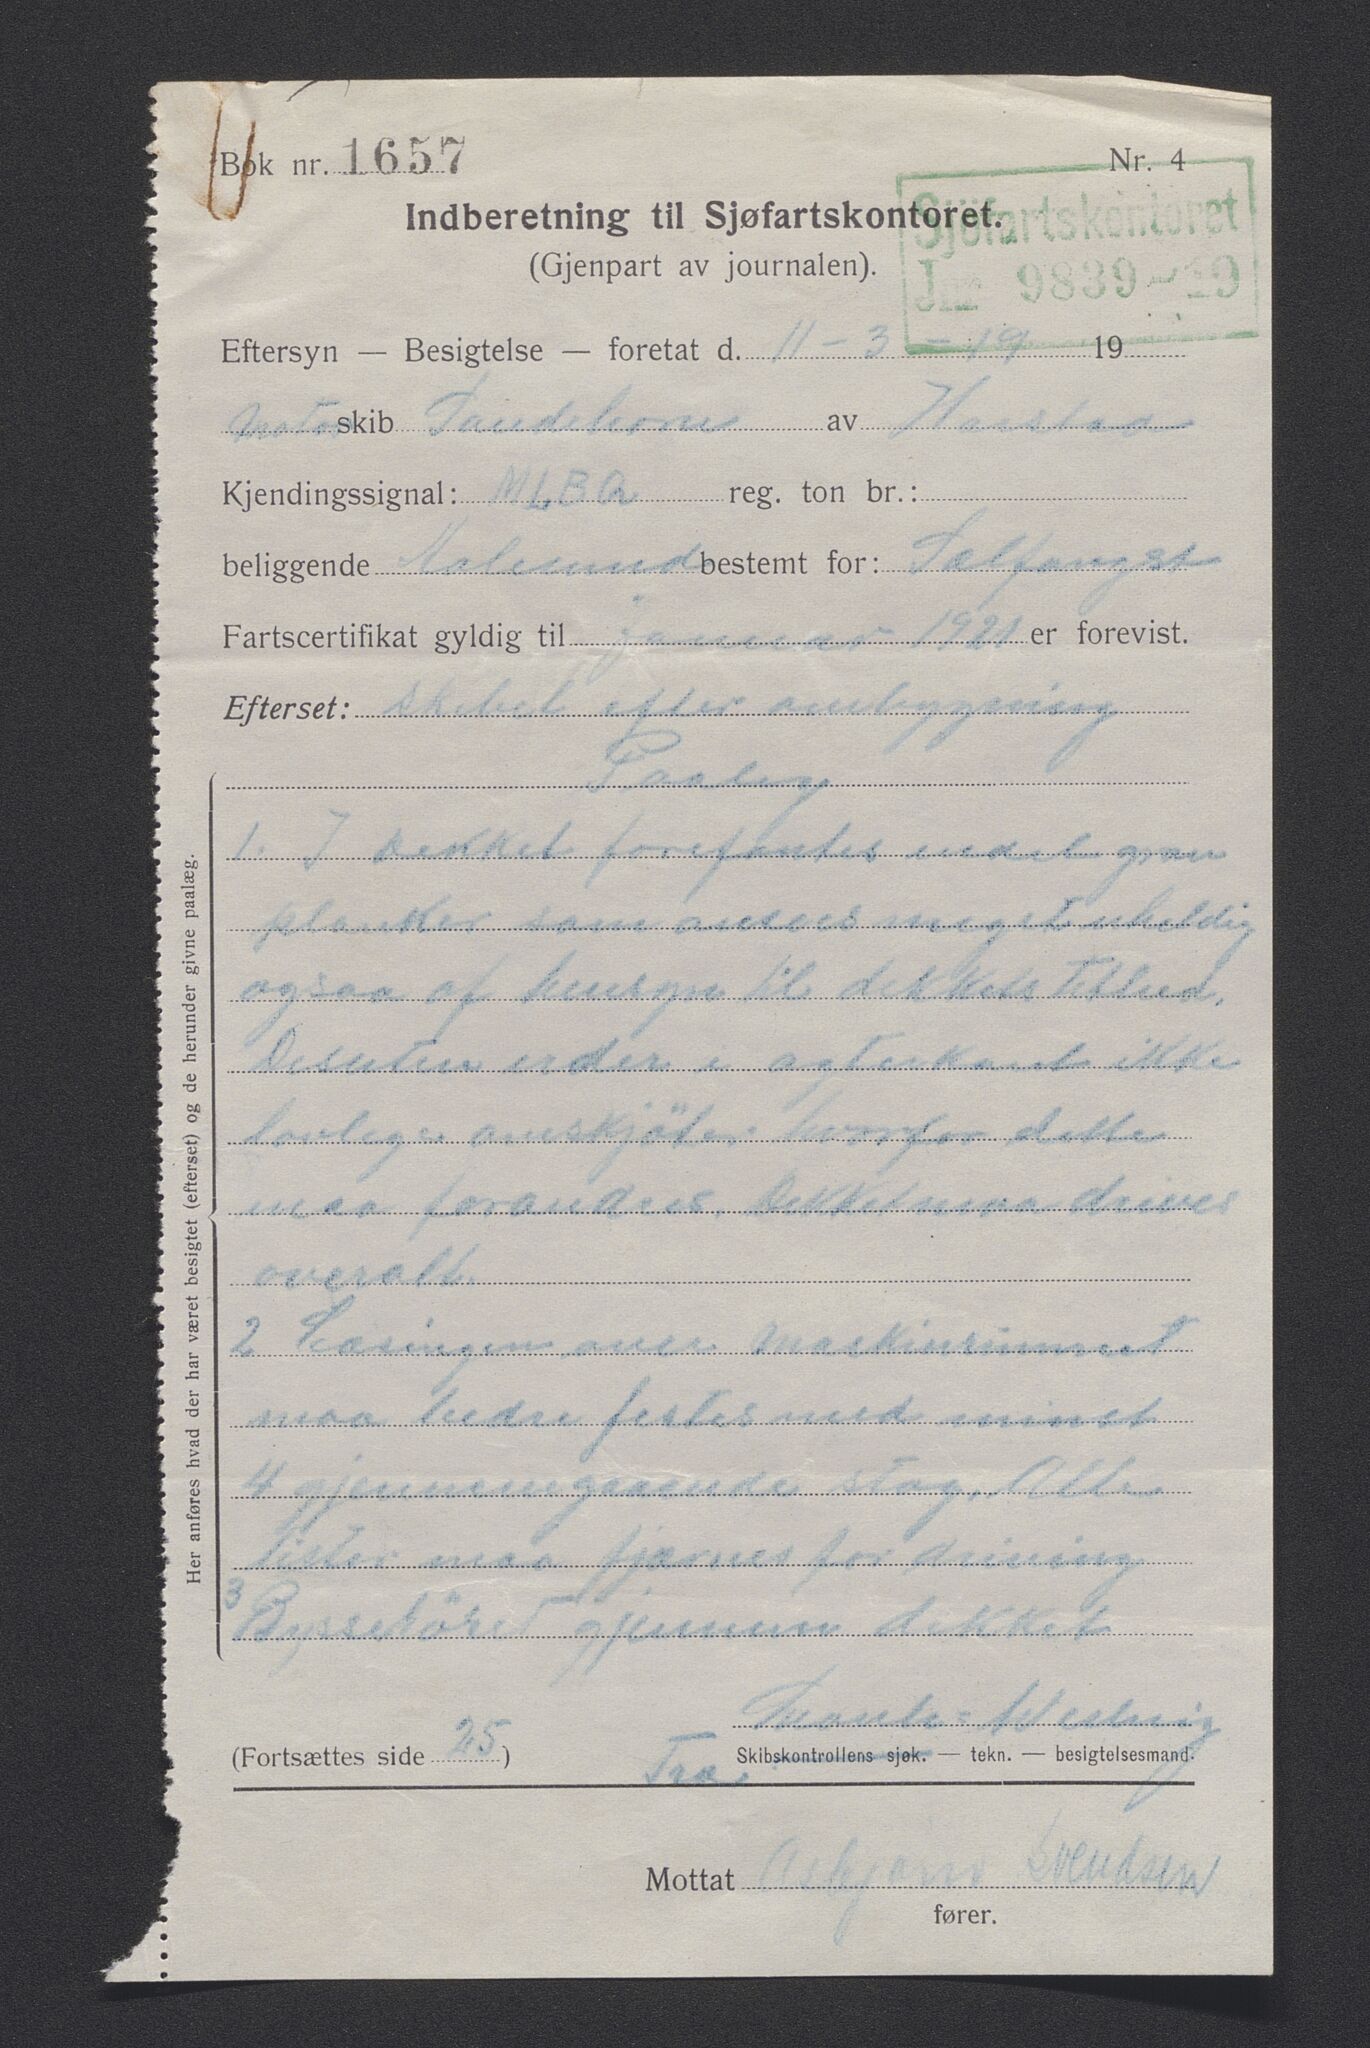 Bok nr. 1657
Nr. 4
Indberetning til Sjøfartskontoret.
(Gjenpart av journalen).
Sjöfartskontoret
Jnr 9839-19
Eftersyn — Besigtelse — foretat d. 11-3-19 19
Motor skib Sandhorn av Harstad
Kjendingssignal: MLBQ reg. ton br.:
beliggende Aalesund bestemt for: Sælfangst
Fartscertifikat gyldig til Januar 1921 er forevist.
Efterset: Skibet efter ombygning
Paalæg
1. I dekket forefantes endel gran
planker som ansees meget uheldig
ogsaa af hensyn til dekkets tethed.
Desuten er der i agterkant ikke
lovlige omskjöter hvorfor dette
maa forandres. Dekket maa drives
overalt.
2 Casingen over Maskinrummet
maa bedre festes med minst
4 gjennemgaaende stag. Alle
lister maa fjærnes for drivning
3 Bysseröret gjennem dekket
Her anføres hvad der har været besigtet (efterset) og de herunder givne paalæg.
(Fortsættes side 25)
Skibskontrollens sjøk. — tekn. — besigtelsesmand.
Mottat Asbjørn Svendsen
fører.